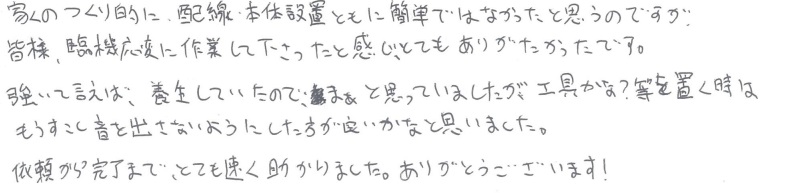 家のつくり的に、配線・本体設置ともに簡単ではなかったと思うのですが、
皆様、臨機応変に作業して下さったと感じ、とてもありがたかったです。
強いて言えば、養生していたので、まぁと思っていましたが、工具かな?等を置く時は
もうすこし音を出さないようにした方が良いかなと思いました。
依頼から完了まで、とても速く助かりました。ありがとうございます!